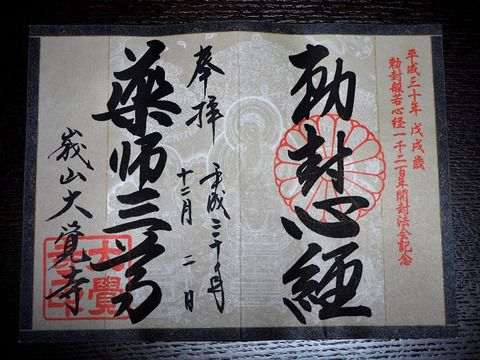 平成三十年 戊戌歳
勅封般若心経一千二百年開封法会記念
勅封心経
奉拝
平成三十年
十二月 二日
薬師三尊
嵯峨山大覺寺
大覺寺